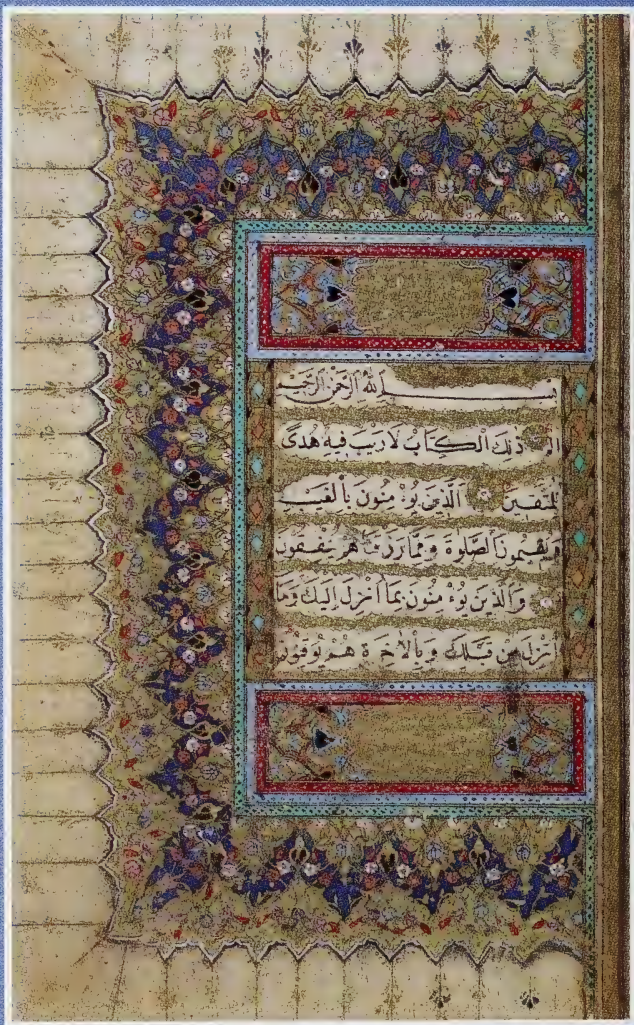 بسم الله الرحمن الرحيم
الم ذلك الكتاب لا ريب فيه هدى
للمتقين الذين يؤمنون بالغيب
ويقيمون الصلوة ومما رزقناهم ينفقون
والذين يؤمنون بما أنزل إليك وما
أنزل من قبلك وبالآخرة هم يوقنون